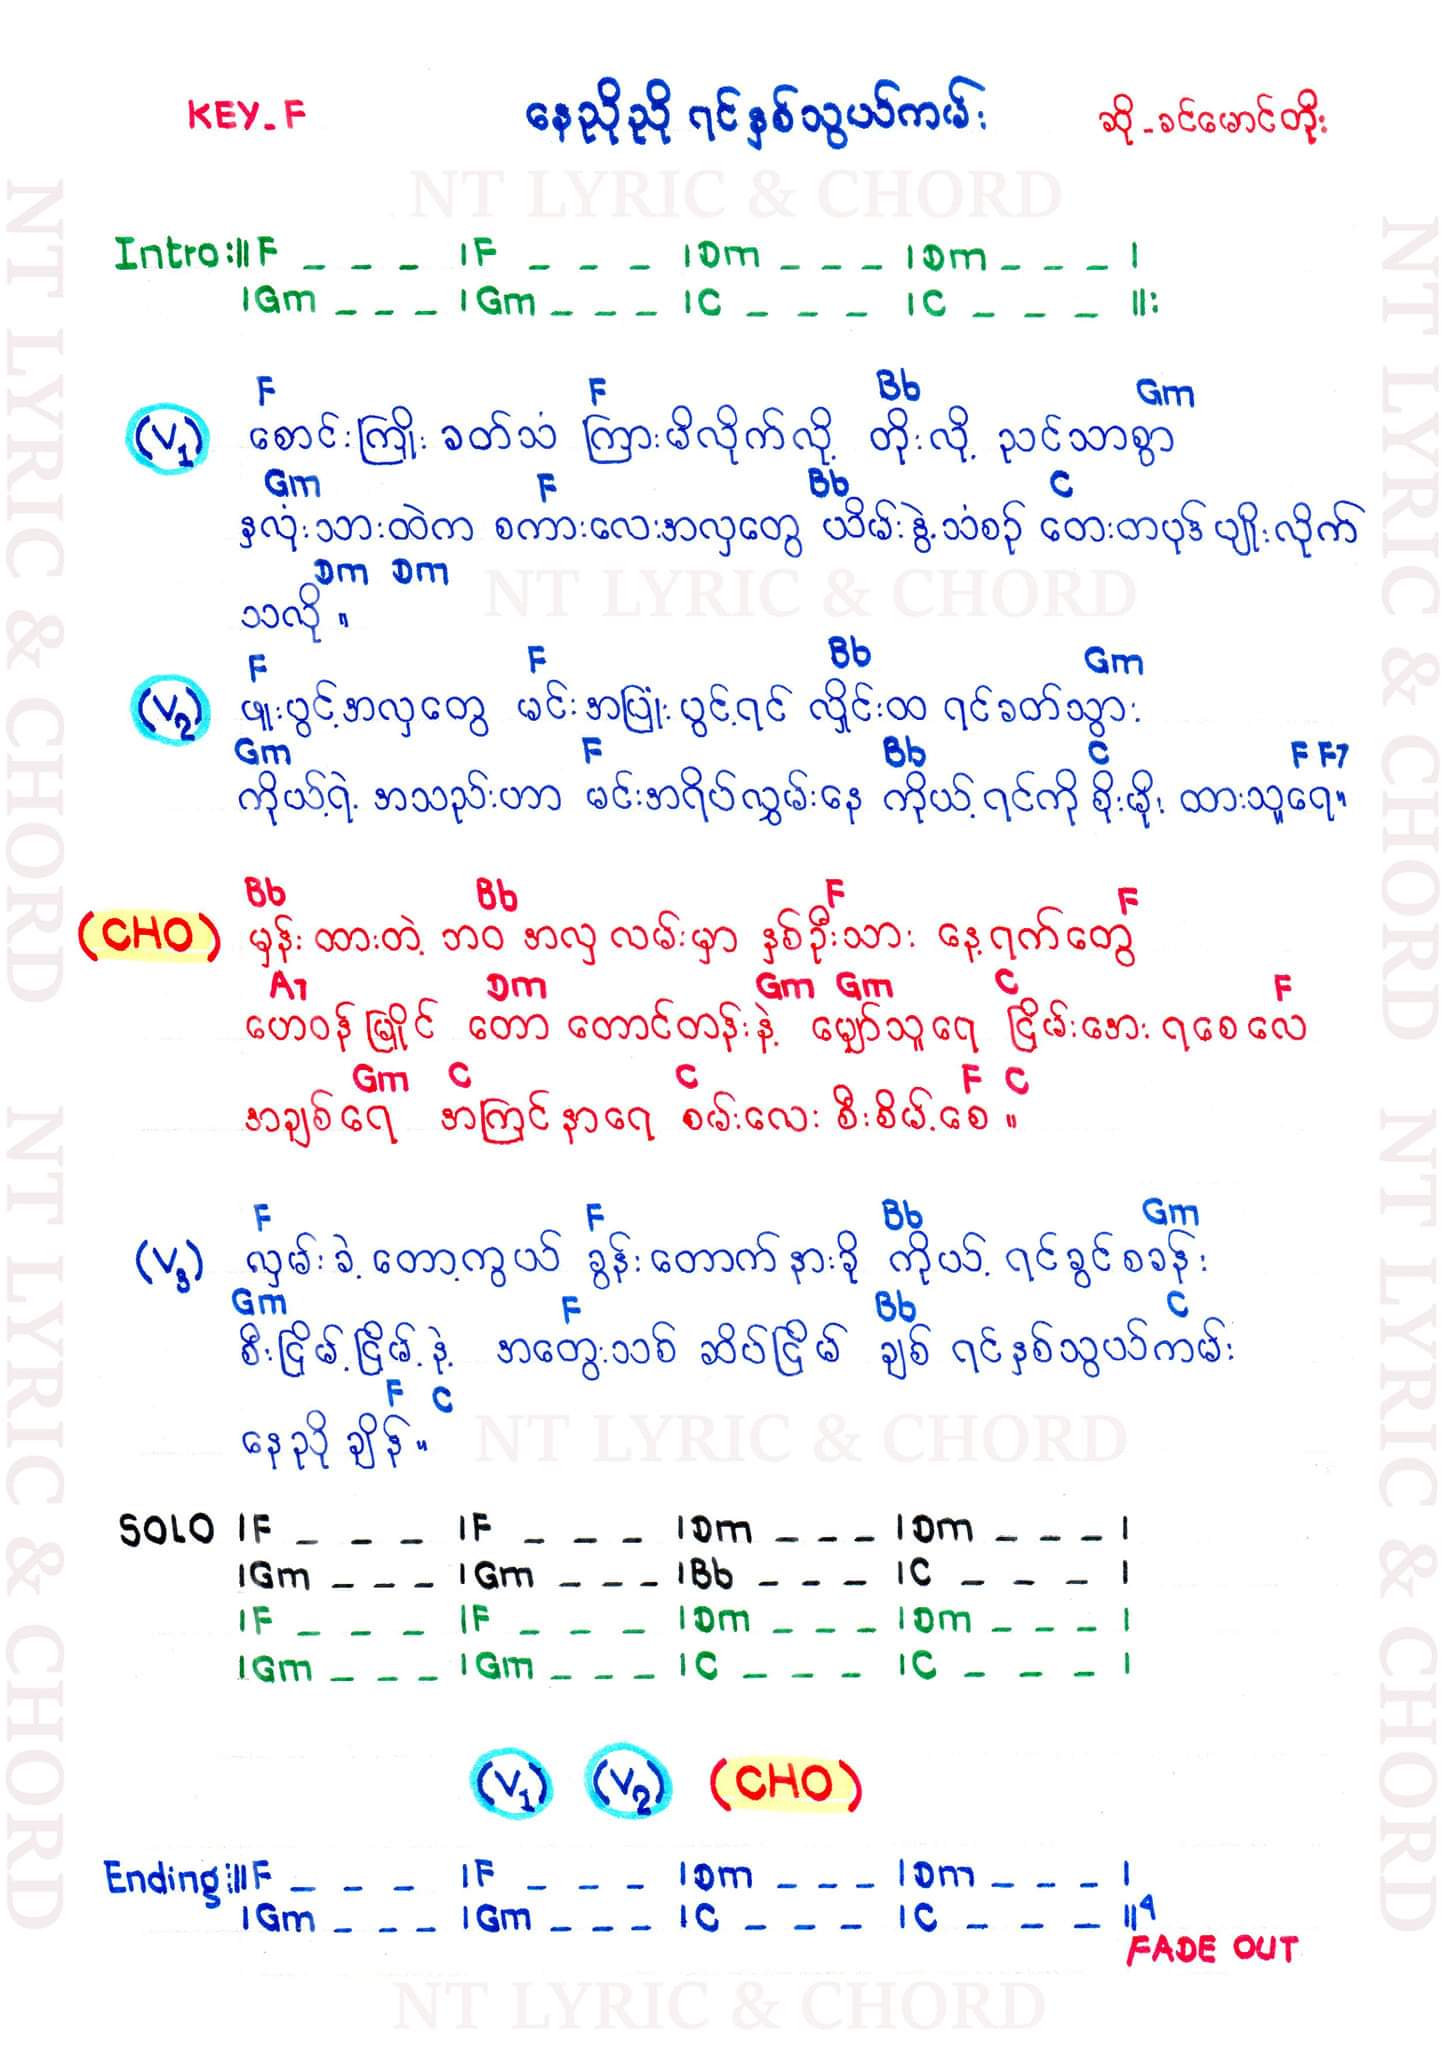 KEY-F နေညိုညို ရင်နှစ်သွယ်ကမ်း ဆို-ခင်မောင်တိုး
NT LYRIC & CHORD
Intro:||F _ _ _ |F _ _ _ |Dm _ _ _ |Dm _ _ _ |
|Gm _ _ _ |Gm _ _ _ |C _ _ _ |C _ _ _ ||:
F F Bb Gm
(V1) စောင်းကြိုး ခတ်သံ ကြားမိလိုက်လို့ တိုးလို့ ညင်သာစွာ
Gm F Bb C
နှလုံးသားထဲက စကားလေးအလှတွေ ယိမ်းနွဲ့သံစဉ် တေးတပုဒ် ပျိုးလိုက်
Dm Dm
သလို ။
NT LYRIC & CHORD
F F Bb Gm
(V2) ဖူးပွင့်အလှတွေ မင်းအပြုံးပွင့်ရင် လှိုင်းထ ရင်ခတ်သွား
Gm F Bb C F F7
ကိုယ့်ရဲ့ အသည်းဟာ မင်းအရိပ်လွှမ်းနေ ကိုယ့်ရင်ကို စိုးမိုး ထားသူရေ။
Bb Bb F F
(CHO) မှန်းထားတဲ့ ဘဝ အလှ လမ်းမှာ နှစ်ဦးသား နေ့ရက်တွေ
A7 Dm Gm Gm C F
ဟေဝန် မြိုင် တော တောင်တန်းနဲ့ မျှော်သူရေ ငြိမ်းအေး ရစေလေ
Gm C C F C
အချစ်ရေ အကြင်နာရေ စမ်းလေး စီးစိမ့်စေ ။
F F Bb Gm
(V3) လှမ်းခဲ့တော့ကွယ် ခွန်းတောက်နားခို ကိုယ့် ရင်ခွင်စခန်း
Gm F Bb C
စီးငြိမ့်ငြိမ့်နဲ့ အတွေးသစ် ဆိပ်ငြိမ် ချစ် ရင်နှစ်သွယ်ကမ်း
F C
နေညို ချိန်။
NT LYRIC & CHORD
SOLO |F _ _ _ |F _ _ _ |Dm _ _ _ |Dm _ _ _ |
|Gm _ _ _ |Gm _ _ _ |Bb _ _ _ |C _ _ _ |
|F _ _ _ |F _ _ _ |Dm _ _ _ |Dm _ _ _ |
|Gm _ _ _ |Gm _ _ _ |C _ _ _ |C _ _ _ |
(V1) (V2) (CHO)
Ending:||F _ _ _ |F _ _ _ |Dm _ _ _ |Dm _ _ _ |
|Gm _ _ _ |Gm _ _ _ |C _ _ _ |C _ _ _ ||4
FADE OUT
NT LYRIC & CHORD
NT LYRIC & CHORD NT LYRIC & CHORD
NT LYRIC & CHORD NT LYRIC & CHORD